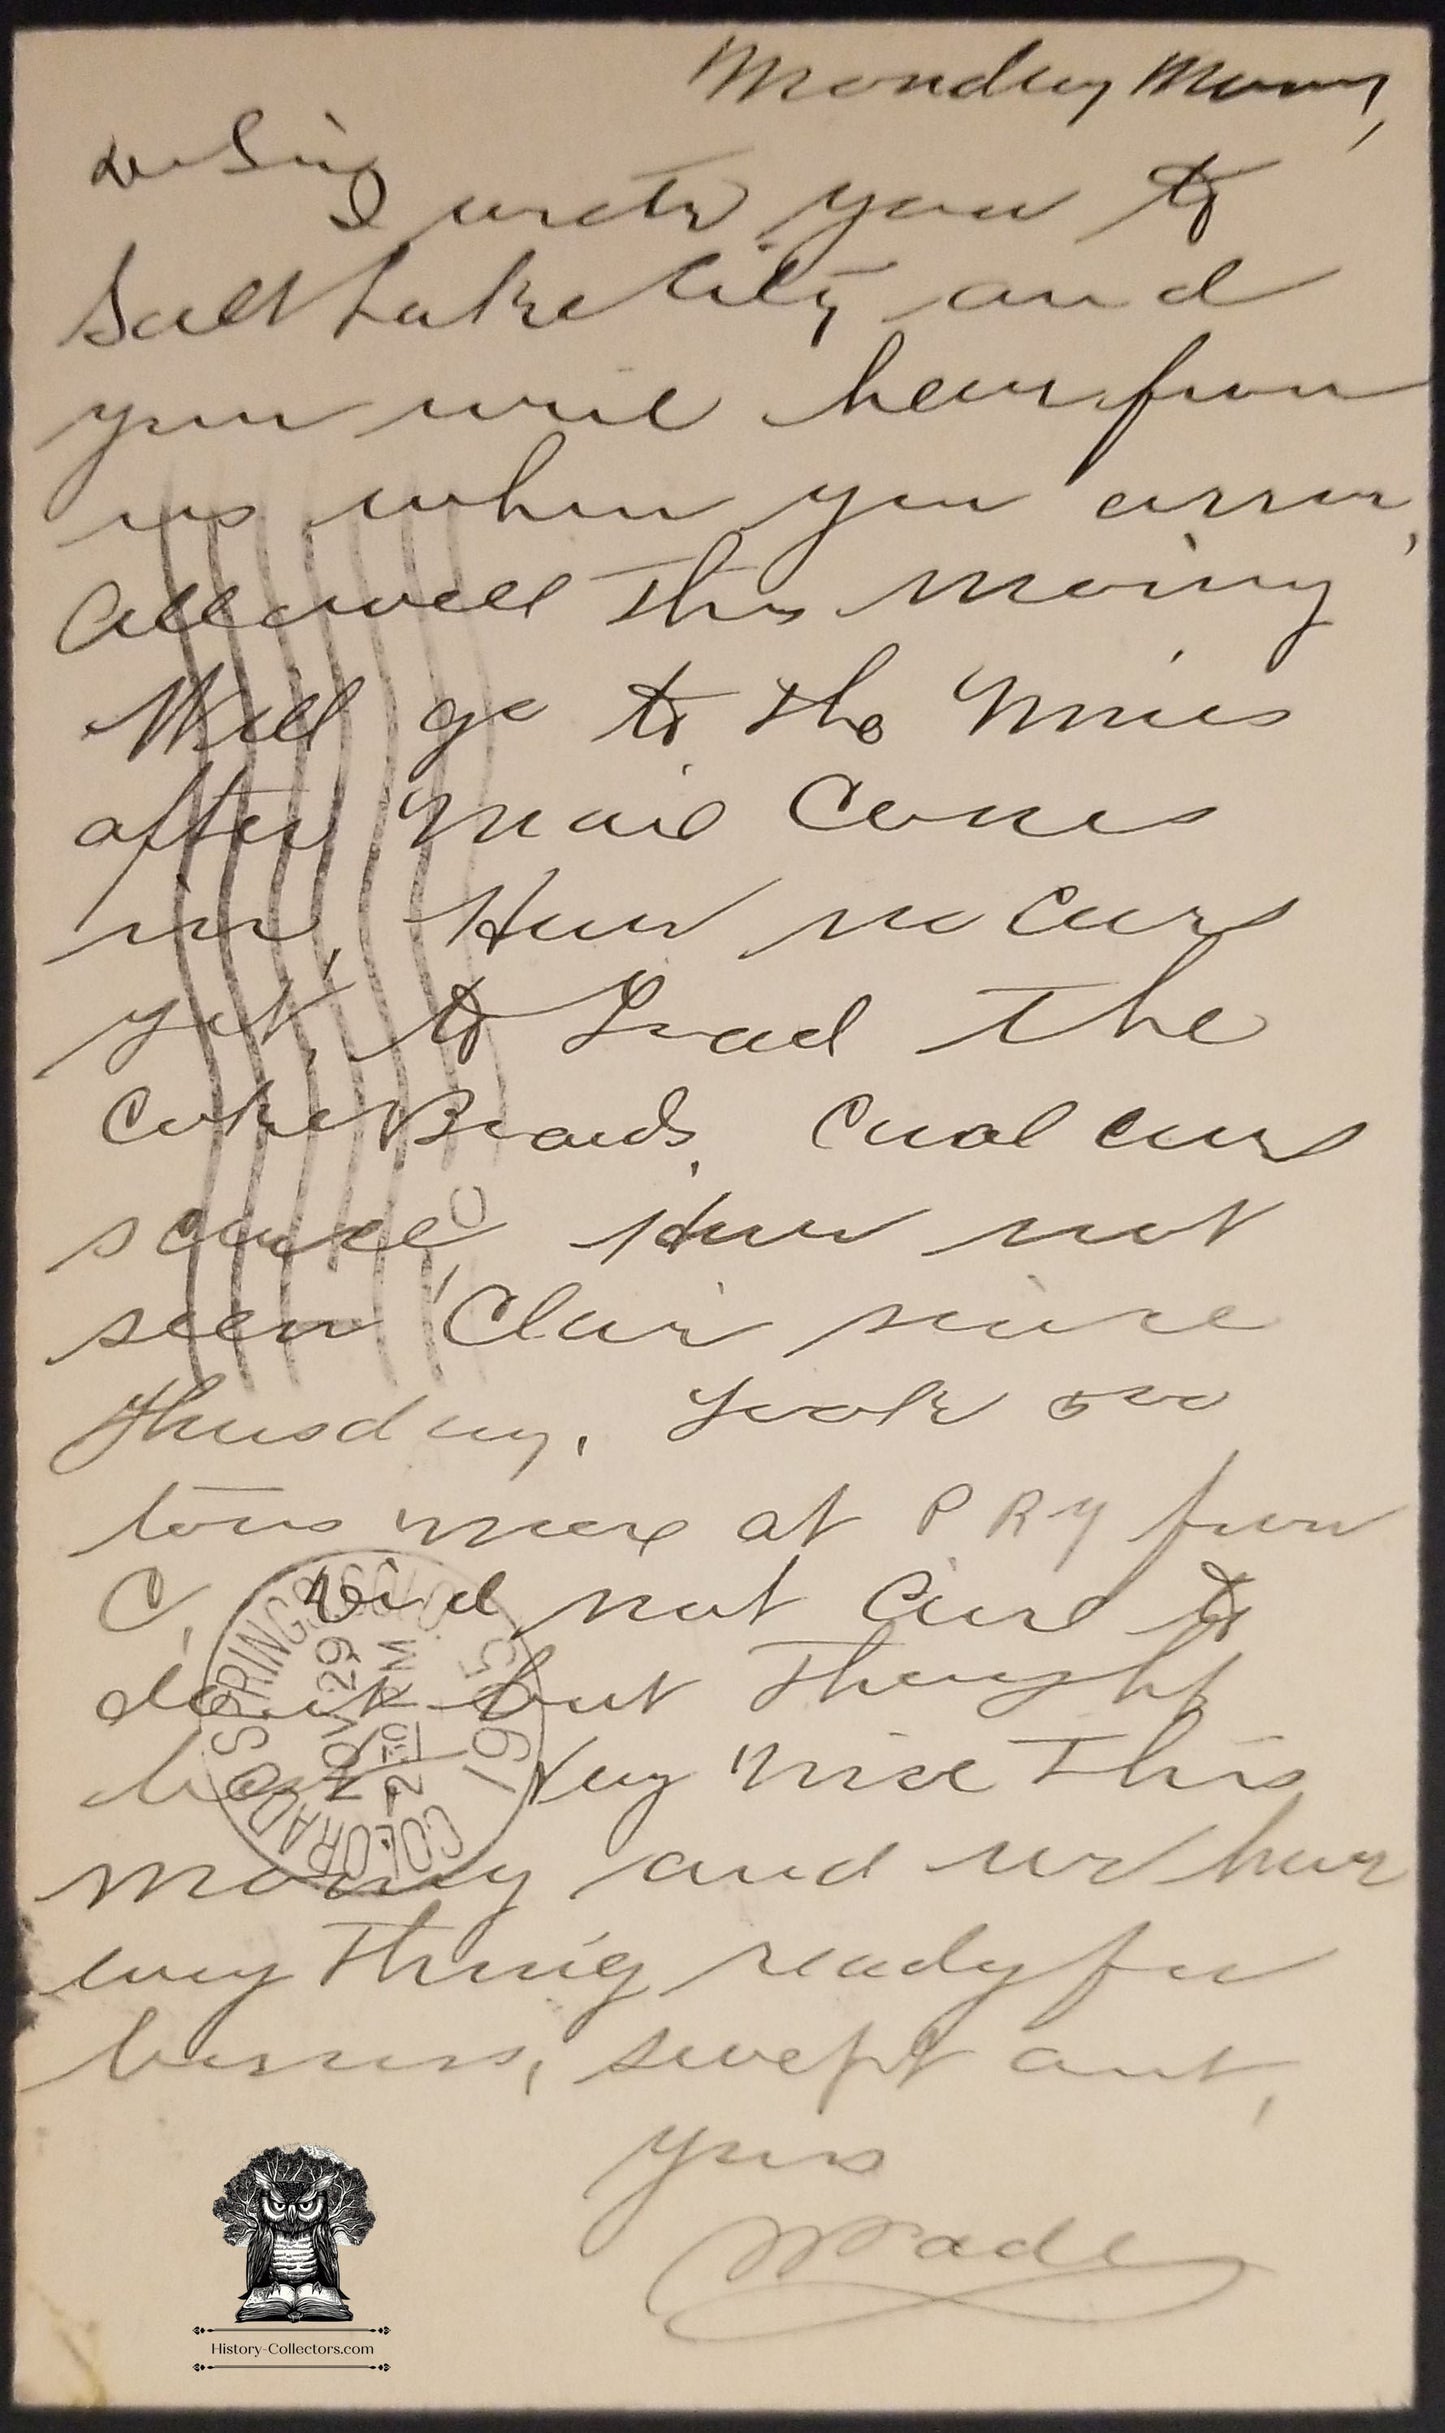 Monday Morng,
Dear Sir
I wrote you to
Salt Lake City and
you will hear from
us when you arrive,
All well this morning
Will go to the Mines
after mail Comes
in, Have no Cars
yet, to Load the
Coke Cual cars
scarce, Have not
seen Clair since
Thusday. Took 500
tons more at P R Y from
C, Did not Care to
do it but thought
best Very nice This
morning and we have
every thing ready for
business, swept out,
yours
Wade
COLORADO SPRINGS COLO.
NOV 29
2 30 PM
1905
C
History-Collectors.com